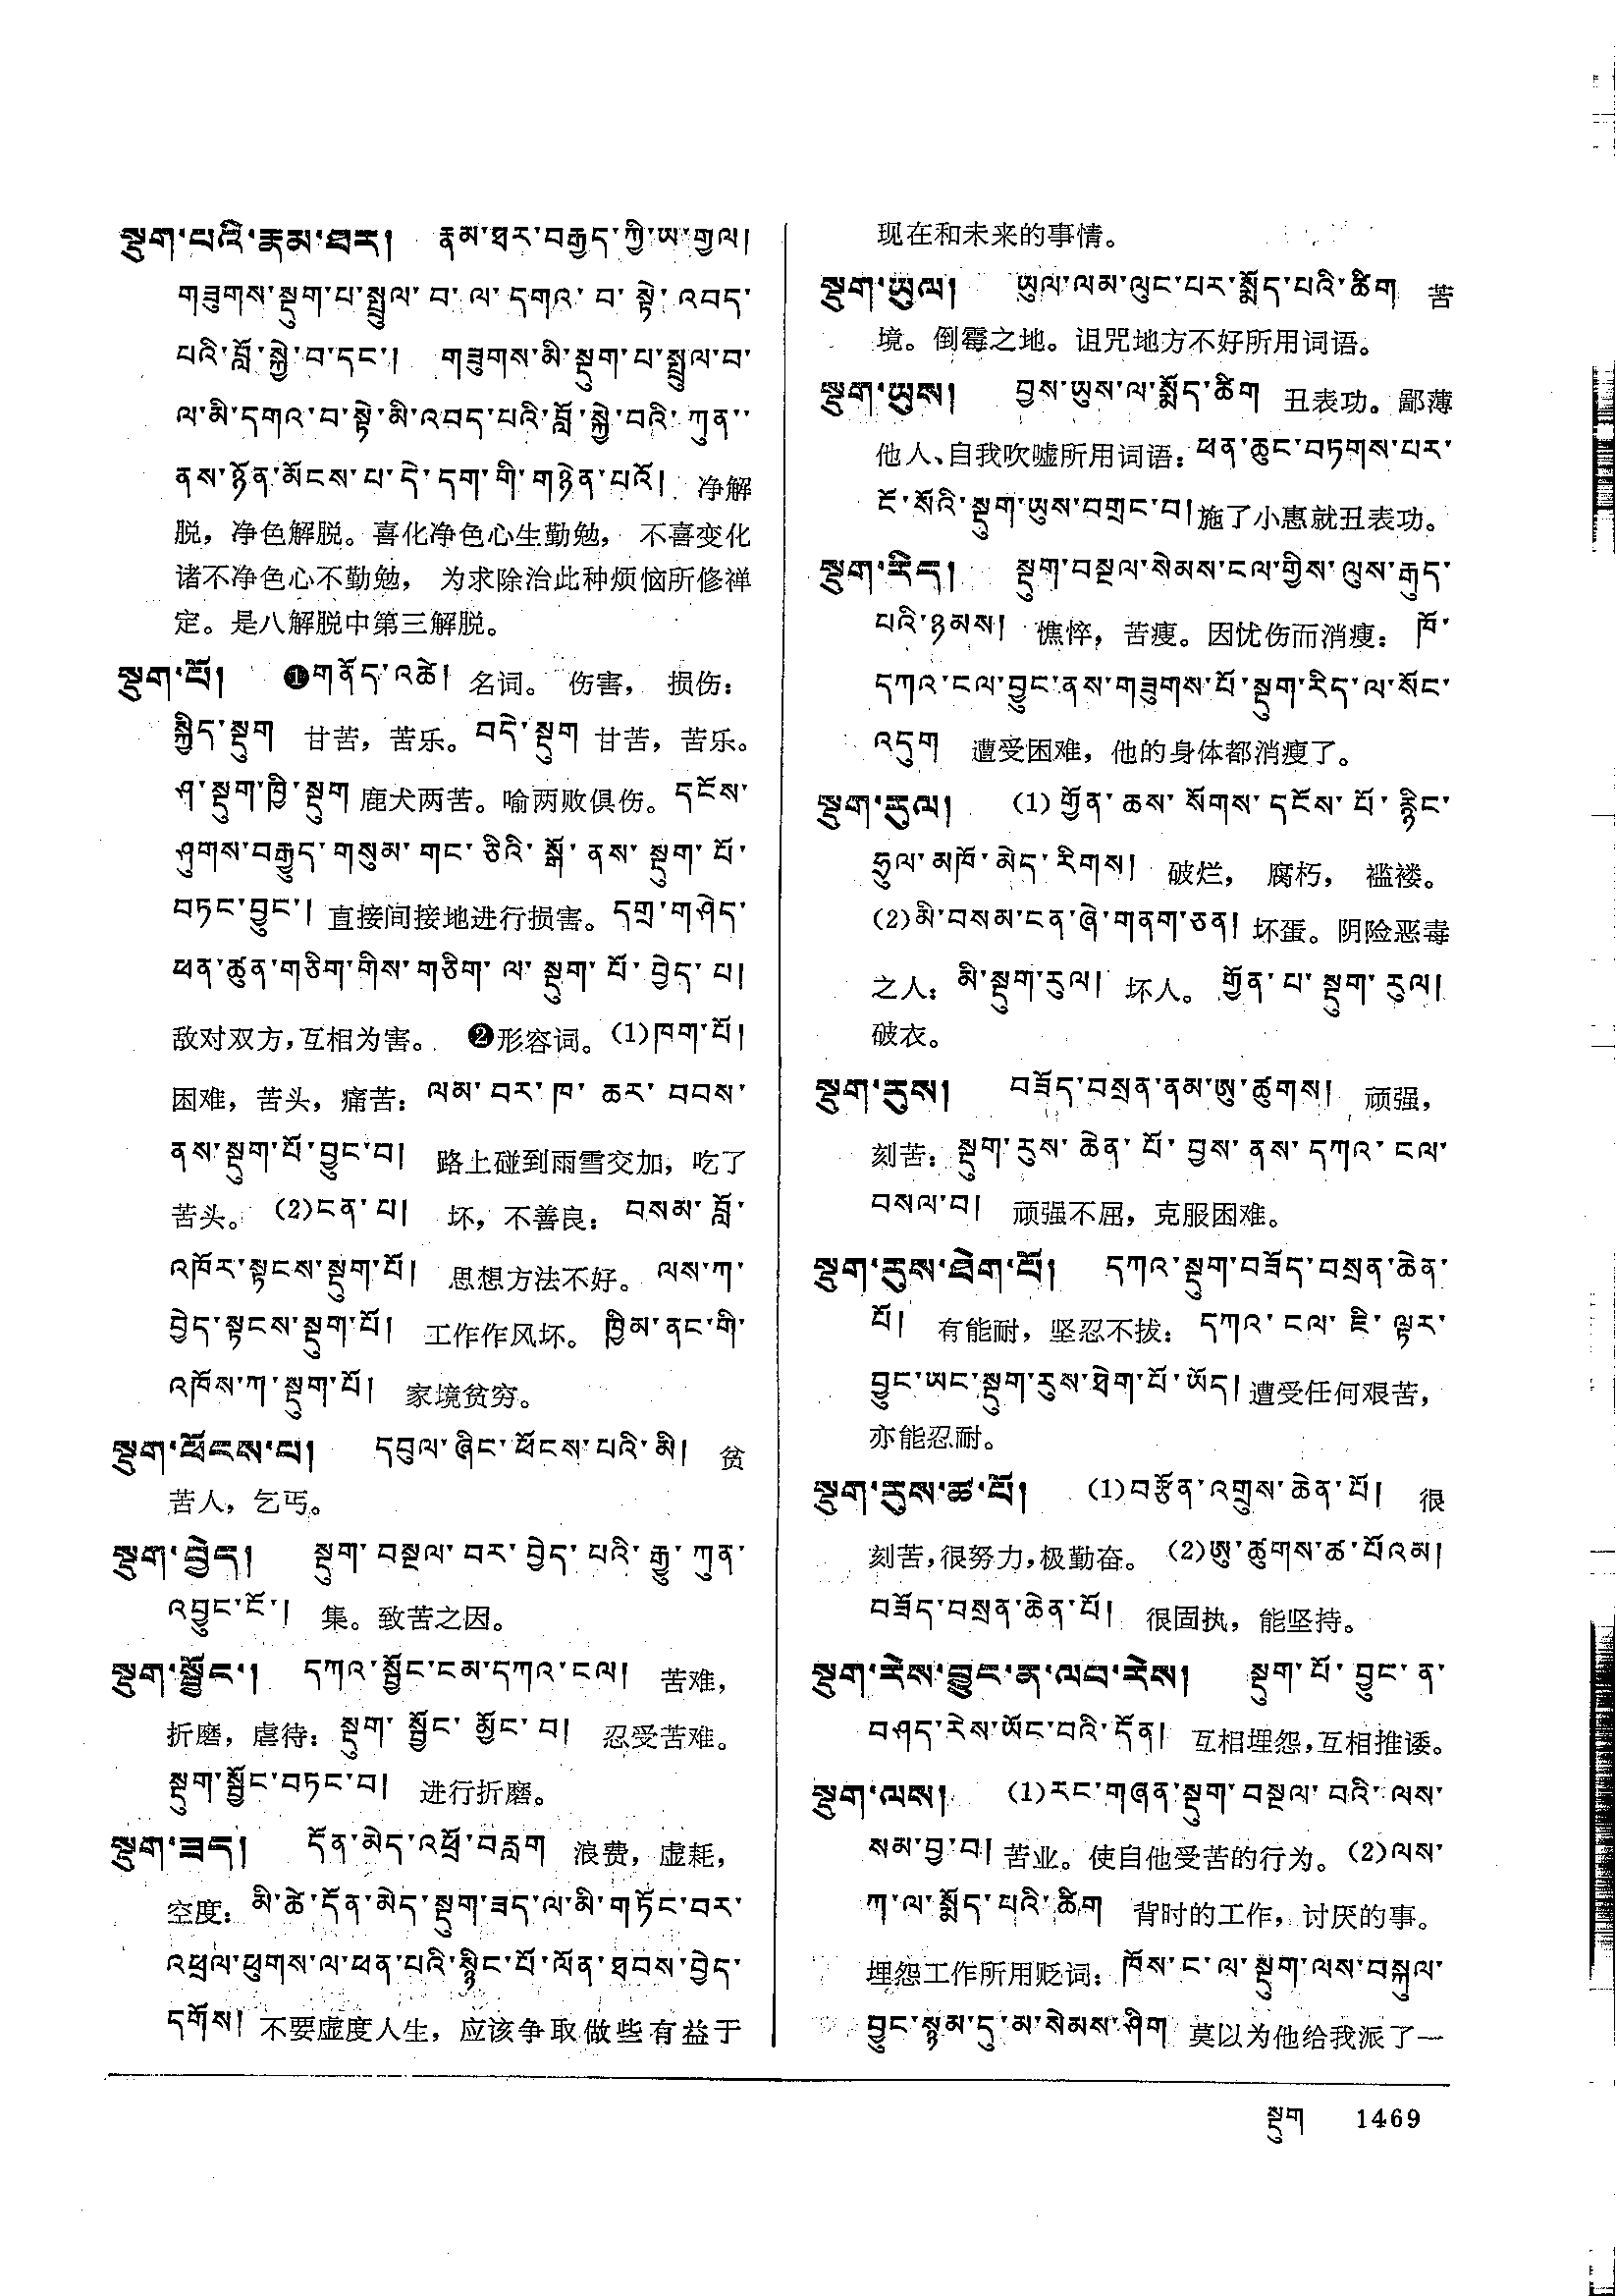 སྡུག་པའི་རྣམ་ཐར། རྣམ་ཐར་བརྒྱད་ཀྱི་ཡ་གྱལ།
གཟུགས་སྡུག་པ་སྤྲུལ་བ་ལ་དགའ་བ་སྟེ་འབད་
པའི་བློ་སྐྱེ་བ་དང་། གཟུགས་མི་སྡུག་པ་སྤྲུལ་བ་
ལ་མི་དགའ་བ་སྟེ་མི་འབད་པའི་བློ་སྐྱེ་བའི་ཀུན་
ནས་ཉོན་མོངས་པ་དེ་དག་གི་གཉེན་པའོ། 净解
脱，净色解脱。喜化净色心生勤勉，不喜变化
诸不净色心不勤勉，为求除治此种烦恼所修禅
定。是八解脱中第三解脱。
སྡུག་པོ། ❶གནོད་འཚེ། 名词。伤害，损伤：
སྐྱིད་སྡུག 甘苦，苦乐。བདེ་སྡུག 甘苦，苦乐。
ཤ་སྡུག་ཁྱི་སྡུག 鹿犬两苦。喻两败俱伤。དངོས་
ཤུགས་བརྒྱུད་གསུམ་གང་ཅིའི་སྒོ་ནས་སྡུག་པོ་
བཏང་བྱུང་། 直接间接地进行损害。དགྲ་གཤེད་
ཕན་ཚུན་གཅིག་གིས་གཅིག་ལ་སྡུག་པོ་བྱེད་པ།
敌对双方，互相为害。❷形容词。(1)ཁག་པོ།
困难，苦头，痛苦：ལམ་བར་ཁ་ཆར་བབས་
ནས་སྡུག་པོ་བྱུང་བ། 路上碰到雨雪交加，吃了
苦头。(2)ངན་པ། 坏，不善良：བསམ་བློ་
འཁོར་སྟངས་སྡུག་པོ། 思想方法不好。ལས་ཀ་
བྱེད་སྟངས་སྡུག་པོ། 工作作风坏。ཁྱིམ་ནང་གི་
འཁོས་ཀ་སྡུག་པོ། 家境贫穷。
སྡུག་ཕོངས་པ། དབུལ་ཞིང་ཕོངས་པའི་མི། 贫
苦人，乞丐。
སྡུག་བྱེད། སྡུག་བསྔལ་བར་བྱེད་པའི་རྒྱུ་ཀུན་
འབྱུང་ངོ་། 集。致苦之因。
སྡུག་སྦྱོང་། དཀའ་སྦྱོང་ངམ་དཀའ་ངལ། 苦难，
折磨，虐待：སྡུག་སྦྱོང་མྱོང་བ། 忍受苦难。
སྡུག་སྦྱོང་བཏང་བ། 进行折磨。
སྡུག་ཟད། དོན་མེད་འཕྲོ་བརླག 浪费，虚耗，
空度：མི་ཚེ་དོན་མེད་སྡུག་ཟད་ལ་མི་གཏོང་བར་
འཕྲལ་ཕུགས་ལ་ཕན་པའི་སྙིང་པོ་ལོན་ཐབས་བྱེད་
དགོས། 不要虚度人生，应该争取做些有益于
现在和未来的事情。
སྡུག་ཡུལ། ཡུལ་ལམ་ལུང་པར་སྨོད་པའི་ཚིག 苦
境。倒霉之地。诅咒地方不好所用词语。
སྡུག་ཡུས། བྱས་ཡུས་ལ་སྨོད་ཚིག 丑表功。鄙薄
他人、自我吹嘘所用词语：ཕན་ཆུང་བཏགས་པར་
ངོ་སོའི་སྡུག་ཡུས་བགྲང་བ། 施了小惠就丑表功。
སྡུག་རིད། སྡུག་བསྔལ་སེམས་ངལ་གྱིས་ལུས་རྒུད་
པའི་ཉམས། 憔悴，苦瘦。因忧伤而消瘦：ཁོ་
དཀའ་ངལ་བྱུང་ནས་གཟུགས་པོ་སྡུག་རིད་ལ་སོང་
འདུག 遭受困难，他的身体都消瘦了。
སྡུག་རུལ། (1)གྱོན་ཆས་སོགས་དངོས་པོ་རྙིང་
ཧྲུལ་མཁོ་མེད་རིགས། 破烂，腐朽，褴褛。
(2)མི་བསམ་ངན་ཞེ་གནག་ཅན། 坏蛋。阴险恶毒
之人：མི་སྡུག་རུལ། 坏人。གྱོན་པ་སྡུག་རུལ།
破衣。
སྡུག་རུས། བཟོད་བསྲན་ནམ་ཨུ་ཚུགས། 顽强，
刻苦：སྡུག་རུས་ཆེན་པོ་བྱས་ནས་དཀའ་ངལ་
བསལ་བ། 顽强不屈，克服困难。
སྡུག་རུས་ཐེག་པོ། དཀའ་སྡུག་བཟོད་བསྲན་ཆེན་
པོ། 有能耐，坚忍不拔：དཀའ་ངལ་ཇི་ལྟར་
བྱུང་ཡང་སྡུག་རུས་ཐེག་པོ་ཡོད། 遭受任何艰苦，
亦能忍耐。
སྡུག་རུས་ཚ་པོ། (1)བརྩོན་འགྲུས་ཆེན་པོ། 很
刻苦，很努力，极勤奋。(2)ཨུ་ཚུགས་ཚ་པོའམ།
བཟོད་བསྲན་ཆེན་པོ། 很固执，能坚持。
སྡུག་རེས་བྱུང་ན་ལབ་རེས། སྡུག་པོ་བྱུང་ན་
བཤད་རེས་ཡོང་བའི་དོན། 互相埋怨，互相推诿。
སྡུག་ལས། (1)རང་གཞན་སྡུག་བསྔལ་བའི་ལས་
སམ་བྱ་བ། 苦业。使自他受苦的行为。(2)ལས་
ཀ་ལ་སྨོད་པའི་ཚིག 背时的工作，讨厌的事。
埋怨工作所用贬词：ཁོས་ང་ལ་སྡུག་ལས་བསྐུལ་
བྱུང་སྙམ་དུ་མ་སེམས་ཤིག 莫以为他给我派了一
སྡུག 1469